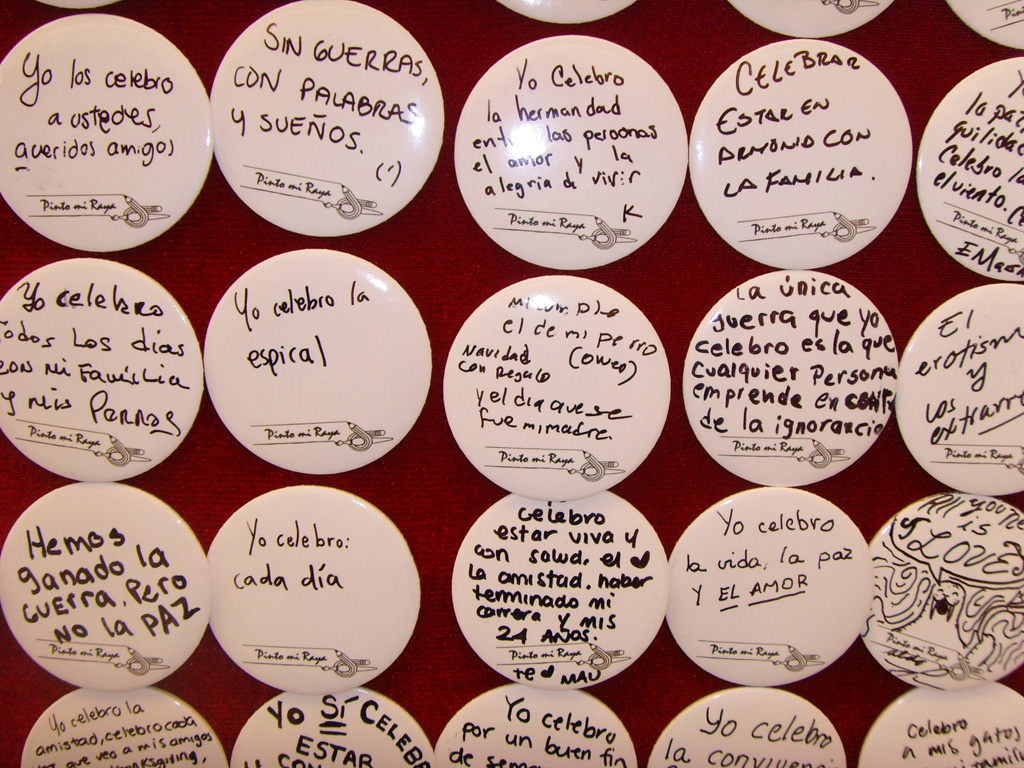 Yo los celebro
a ustedes,
queridos amigos
Pinto mi Raya
SIN GUERRAS,
CON PALABRAS
Y SUEÑOS.
Pinto mi Raya
Yo Celebro
la hermandad
entre las personas
el amor y la
alegria de vivir
K
Pinto mi Raya
CELEBRAR
ESTAR EN
ARMONIA CON
LA FAMILIA.
Pinto mi Raya
la paz
Celebro la
el viento.
Pinto mi
Yo celebro
todos los días
con mi Familia
y mis Perros
Pinto mi Raya
Yo celebro la
espiral
Pinto mi Raya
el de mi perro
NAVIDAD
CON Regalo
y el dia que se
fue mi madre.
Pinto mi Raya
La única
guerra que yo
celebro es la que
cualquier persona
emprende en contra
de la ignorancia
Pinto mi Raya
El
erotismo
y
los
Pinto mi Raya
Hemos
ganado la
guerra. Pero
NO la PAZ
Pinto mi Raya
Yo celebro:
cada día
Pinto mi Raya
celebro
estar viva y
con salud, el ♥
la amistad, haber
terminado mi
carrera y mis
24 AÑOS.
Pinto mi Raya
te ♥ MAU
Yo celebro
la vida, la paz
Y EL AMOR
Pinto mi Raya
All you need
is
LOVE
Pinto mi Raya
Yo celebro la
amistad, celebro cada
vez que veo a mis amigos
Yo SÍ CELEBR
ESTAR
Yo celebro
por un buen fin
de sem
Yo celebro
la convivenci
Celebro
a mis gatos